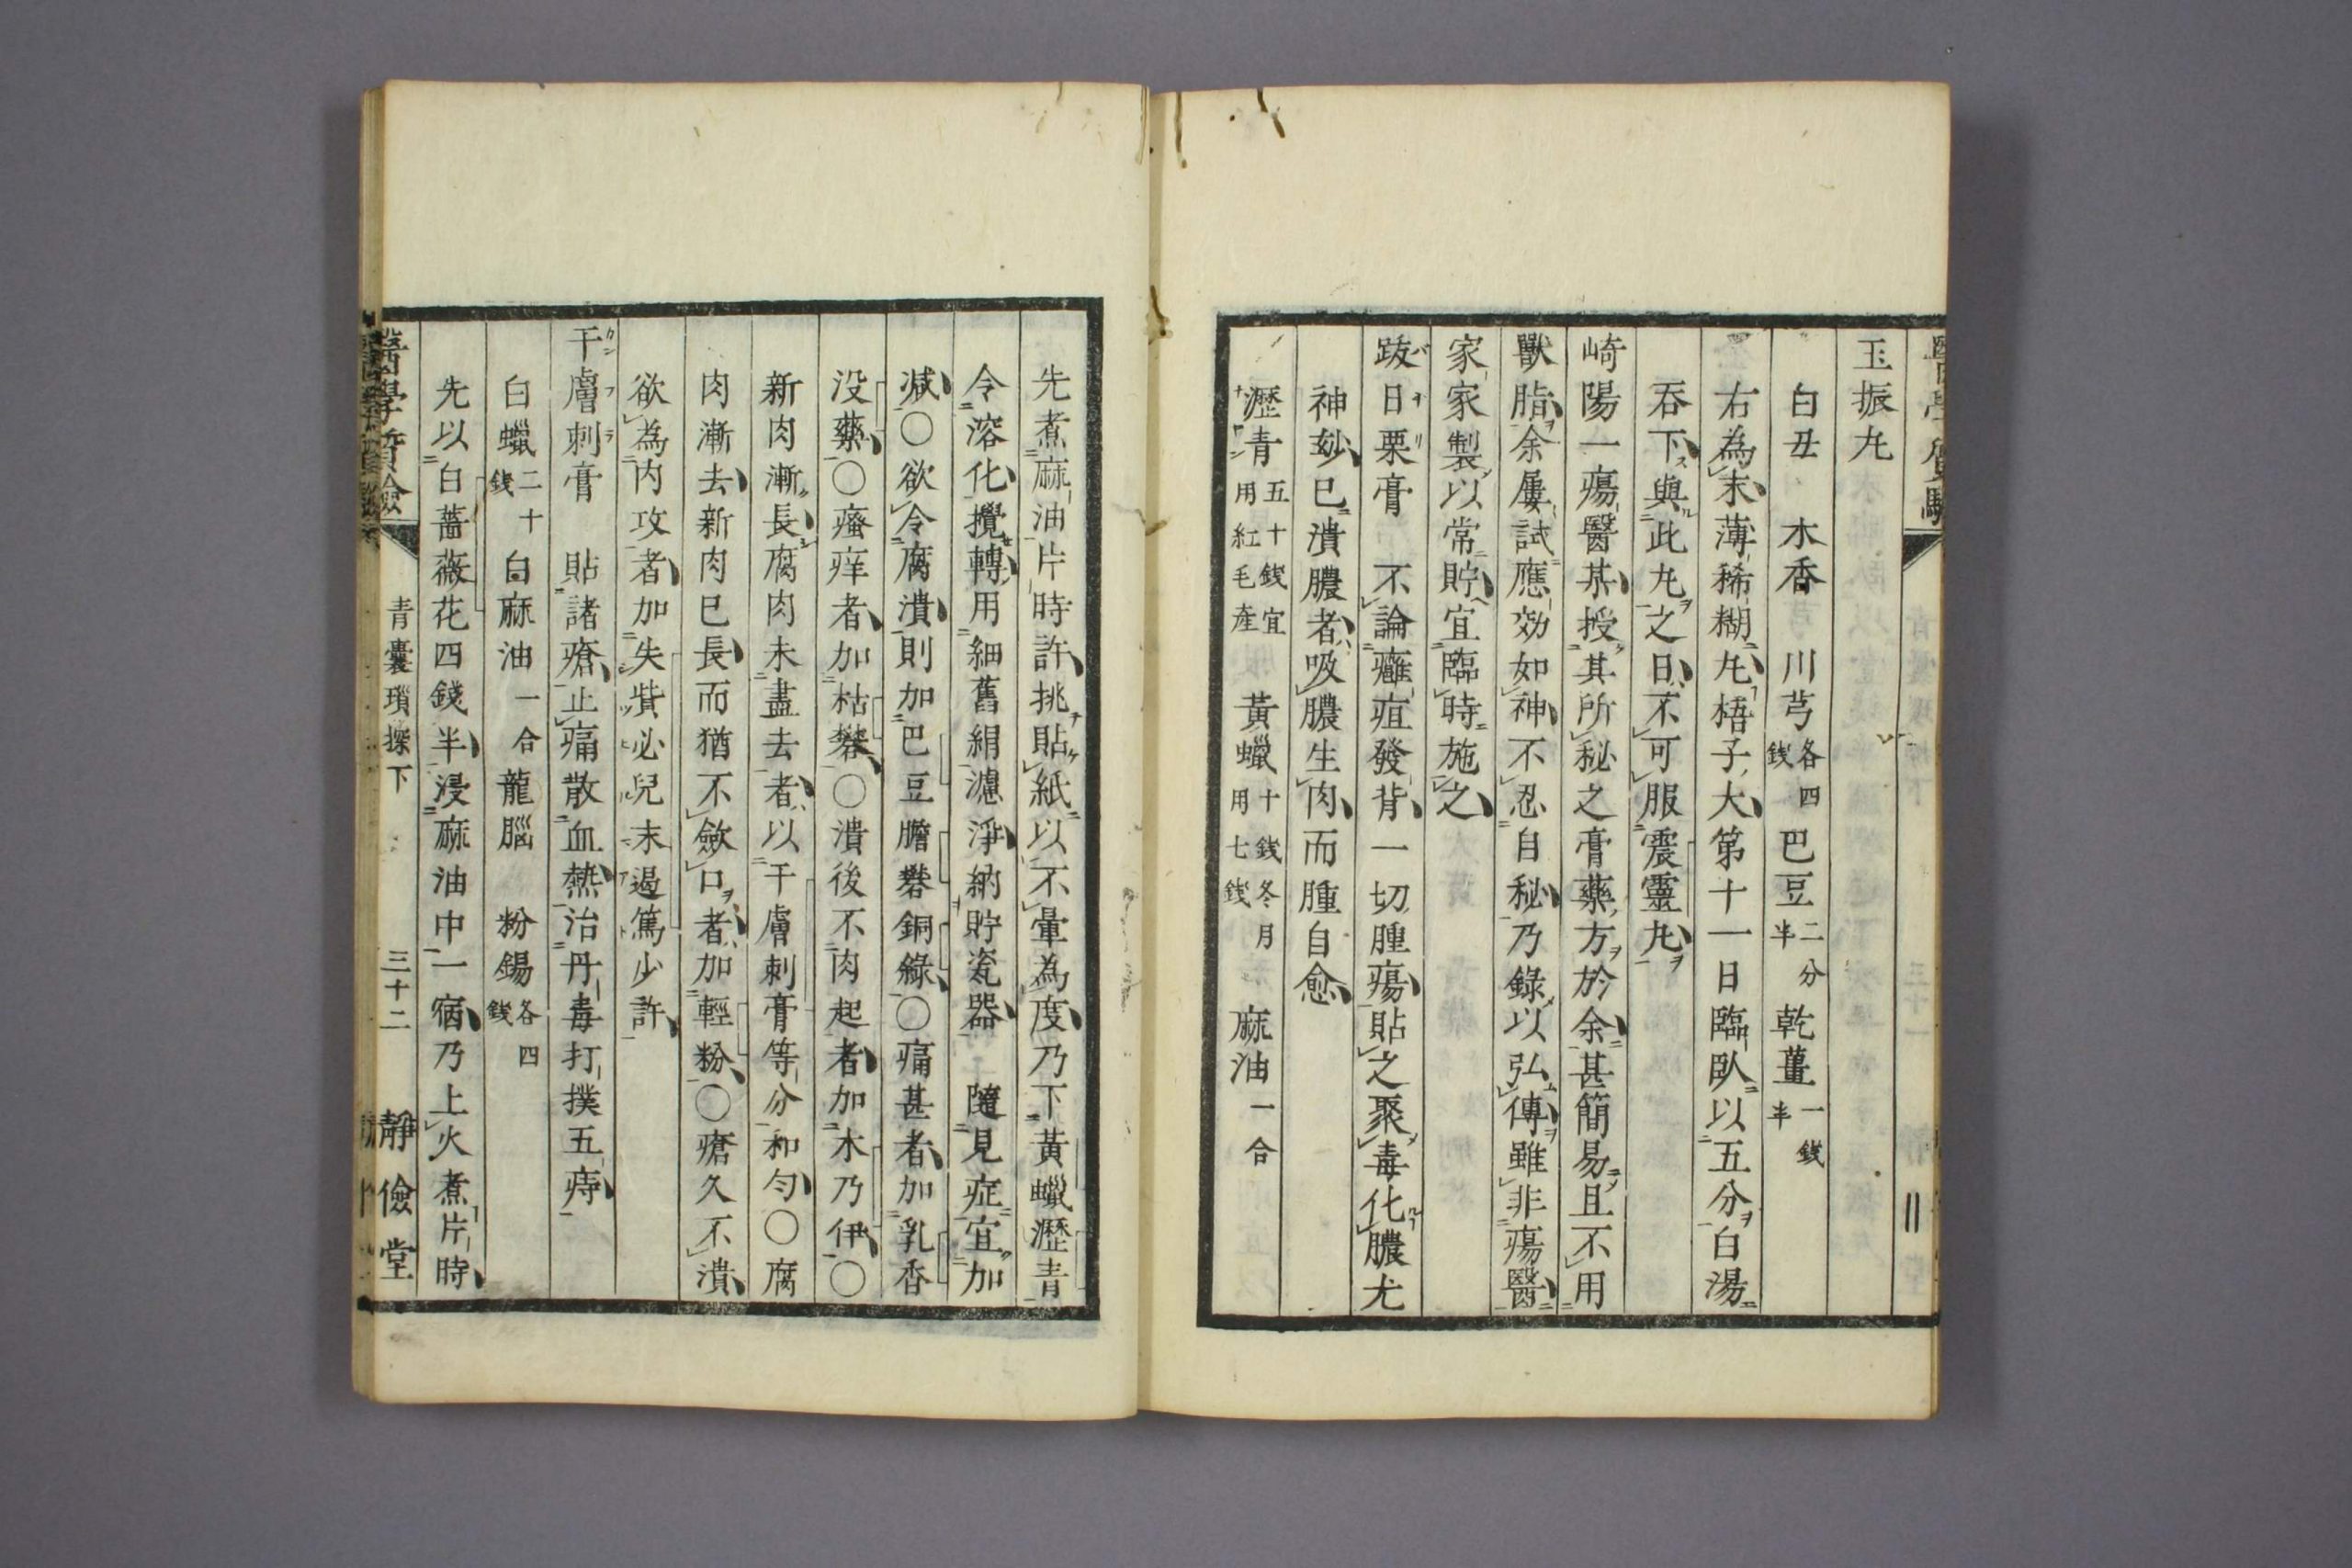 玉振丸
白丑 木香 川芎各四錢 巴豆二分半 乾薑一錢半
右為末薄稀糊丸梧子大第十一日臨臥以五分白湯
吞下與此丸之日不可服震靈丸
崎陽一瘍醫某授其所秘之膏藥方於余甚簡易且不用
獸脂余屢試應効如神不忍自秘乃錄以弘傳雖非瘍醫
家家製以常貯宜臨時施之
跋日栗膏 不論癰疽發背一切腫瘍貼之聚毒化膿尤
神妙已潰膿者吸膿生肉而腫自愈
瀝青五十錢宜用紅毛產 黃蠟十錢冬月用七錢 麻油一合
先煮麻油片時許挑貼紙以不暈為度乃下黃蠟瀝青
令溶化攪轉用細舊絹濾淨納貯瓷器 隨見症宜加
減○欲令腐潰則加巴豆膽礬銅綠○痛甚者加乳香
没藥○瘙痒者加枯礬○潰後不肉起者加木乃伊○
新肉漸長腐肉未盡去者以干膚刺膏等分和勻○腐
肉漸去新肉已長而猶不斂口者加輕粉○瘡久不潰
欲為內攻者加失貲必兒末遏篤少許
干膚刺膏 貼諸瘡止痛散血熱治丹毒打撲五痔
白蠟二十錢 白麻油一合 龍腦 粉錫各四錢
先以白薔薇花四錢半浸麻油中一宿乃上火煮片時
醫學質驗 青囊瑣探下 三十二 靜儉堂